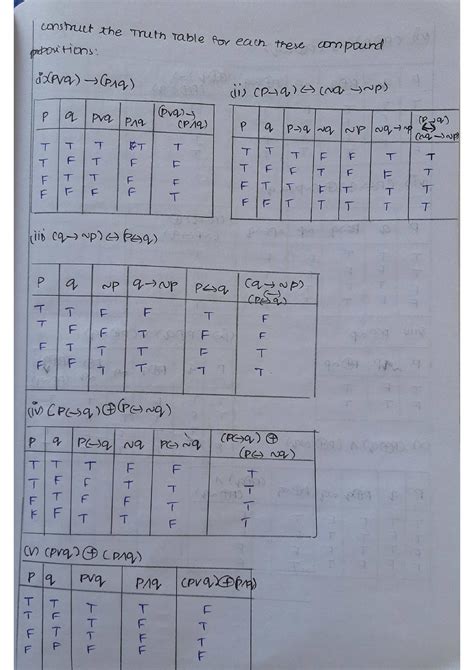 construct the Truth table for each these compound
propositions:
i) (p∨q) → (p∧q)
p q p∨q p∧q (p∨q) → (p∧q)
T T T T T
T F T F F
F T T F F
F F F F T
(ii) (p→q) ↔ (~q → ~p)
p q p→q ~q ~p ~q→~p (p→q) ↔ (~q→~p)
T T T F F T T
T F F T F F T
F T T F T T T
F F T T T T T
(iii) (q→~p) ↔ (p↔q)
p q ~p q→~p p↔q (q→~p) ↔ (p↔q)
T T F F T F
T F F T F F
F T T T F F
F F T T T T
(iv) (p↔q) ⊕ (p↔~q)
p q p↔q ~q p↔~q (p↔q) ⊕ (p↔~q)
T T T F F T
T F F T T T
F T F F T T
F F T T F T
(v) (p∨q) ⊕ (p∧q)
p q p∨q p∧q (p∨q)⊕(p∧q)
T T T T F
T F T F T
F T T F T
F F F